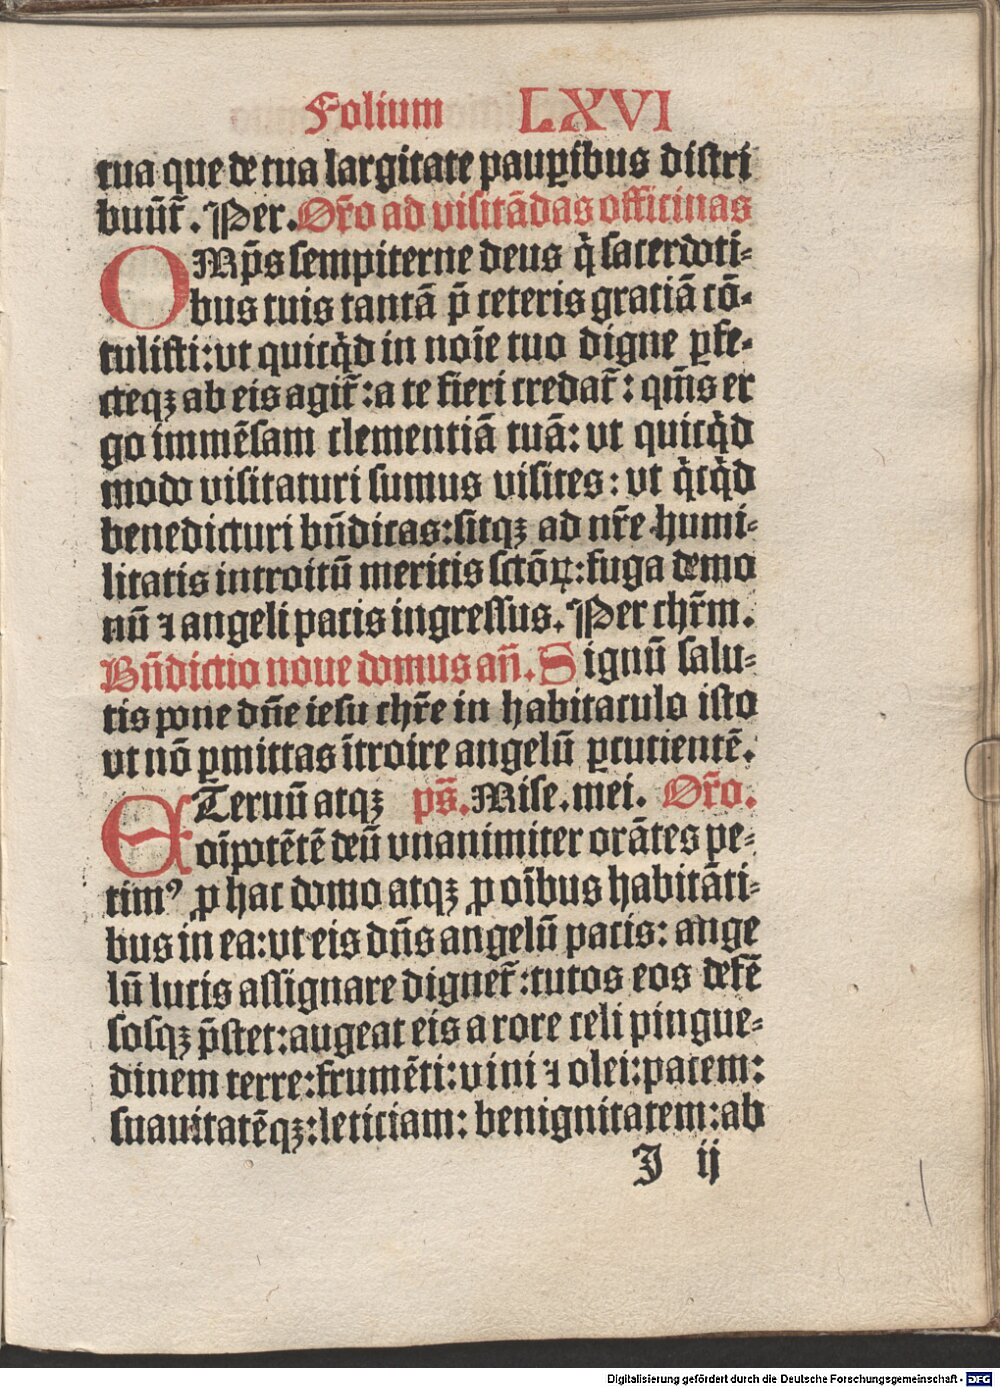 Folium LXVI
tua que de tua largitate pauꝑibus distri
buūt᷑. Per. Or̄o ad visitādas officinas
OMp̄s sempiterne deus q̇ sacerdoti⸗
bus tuis tantā p̄ ceteris gratiā cō⸗
tulisti: vt quicq̇d in noīe tuo digne ꝑfe⸗
cteqꝫ ab eis agit᷑: a te fieri credat᷑: qm̄s er
go immēsam clementiā tuā: vt quicq̇d
modo visitaturi sumus visites: vt q̇cq̇d
benedicturi bn̄dicas: sitqꝫ ad nr̄e humi⸗
litatis introitū meritis sctōꝝ: fuga demo
nū ⁊ angeli pacis ingressus. Per chr̄m.
Bn̄dictio noue domus an̄. Signū salu⸗
tis pone dn̄e iesu chr̄e in habitaculo isto
vt nō ꝑmittas ītroire angelū ꝑcutientē.
ETernū atqꝫ ps̄. Mise. mei. Or̄o.
oīpotētē deū vnanimiter orātes pe⸗
timꝰ ꝓ hac domo atqꝫ ꝓ oībus habitāti⸗
bus in ea: vt eis dn̄s angelū pacis: ange
lū lucis assignare dignet᷑: tutos eos defē
sosqꝫ p̄stet: augeat eis a rore celi pingue⸗
dinem terre: frumēti: vini ⁊ olei: pacem:
suauitatēqꝫ: leticiam: benignitatem: ab
J ij
Digitalisierung gefördert durch die Deutsche Forschungsgemeinschaft - DFG